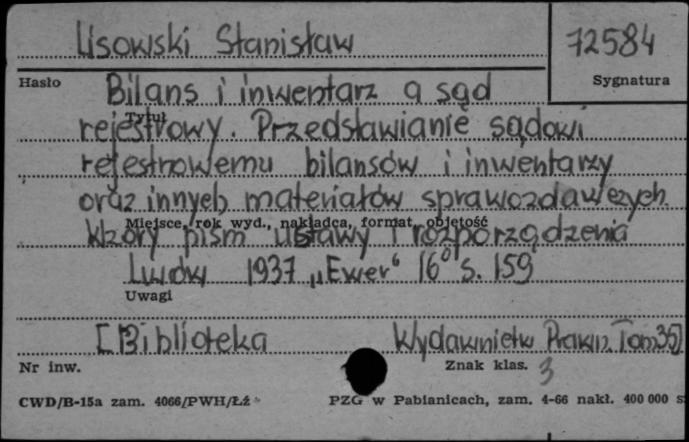 Lisowski Stanisław
72584
Hasło
Sygnatura
Bilans i inwentarz a sąd
Tytuł
rejestrowy. Przedstawianie sądowi
rejestrowemu bilansów i inwentarzy
oraz innych materiałów sprawozdawczych.
Miejsce, rok wyd., nakładca, format, objętość
Wzory pism ustawy i rozporządzenia
Lwów 1937 „Ewer“ 16° s. 159
Uwagi
[Biblioteka Wydawnictw Prawn. Tom 35]
Nr inw.
Znak klas. 3
CWD/B-15a zam. 4066/PWH/Łź
PZG w Pabianicach, zam. 4-66 nakł. 400 000 s